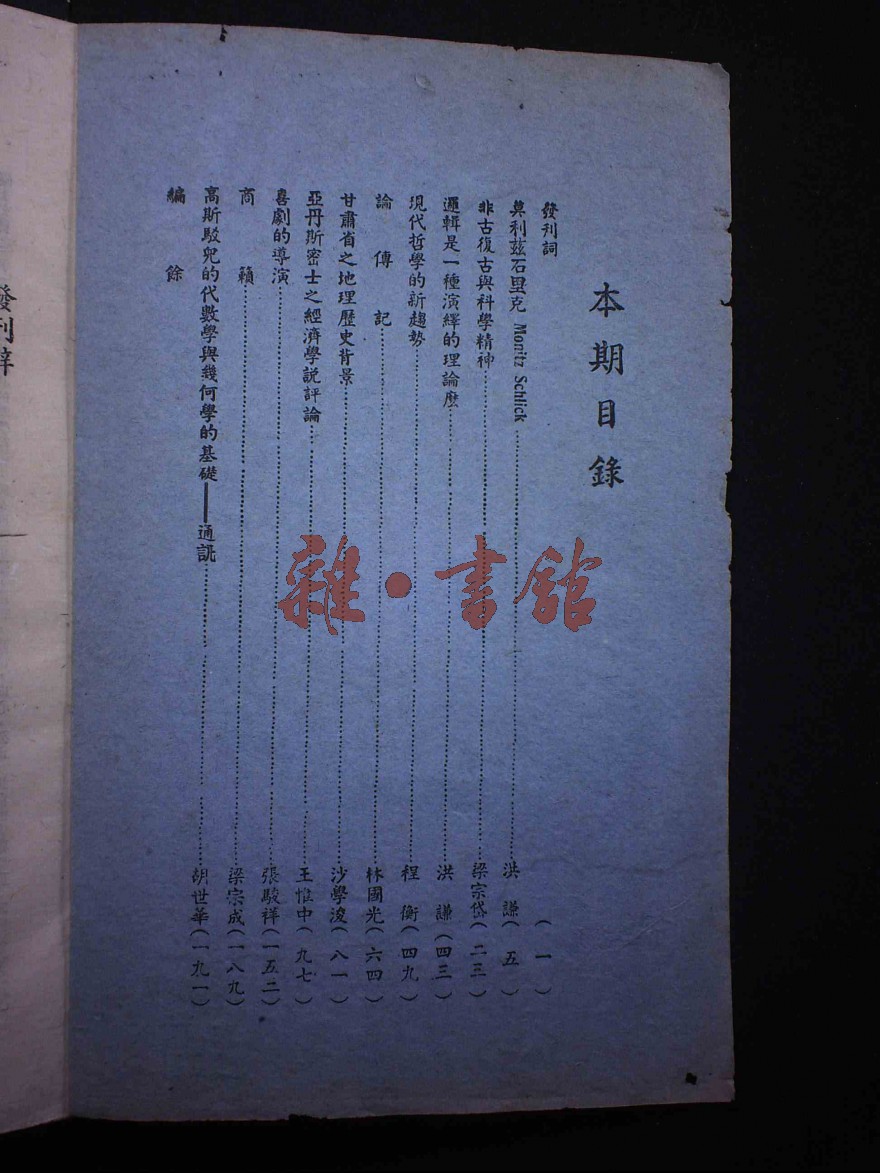 本期目錄
發刊詞 （一）
莫利茲石里克 Moritz Schlick 洪謙（五）
非古復古與科學精神 梁宗岱（二三）
邏輯是一種演繹的理論麽 洪謙（四三）
現代哲學的新趨勢 程衡（四九）
論傳記 林國光（六四）
甘肅省之地理歷史背景 沙學浚（八一）
亞丹斯密士之經濟學說評論 王惟中（九七）
喜劇的導演 張駿祥（一五二）
商籟 梁宗成（一八九）
高斯駁兒的代數學與幾何學的基礎——通訊 胡世華（一九一）
編餘
雜·書館
發刊辭